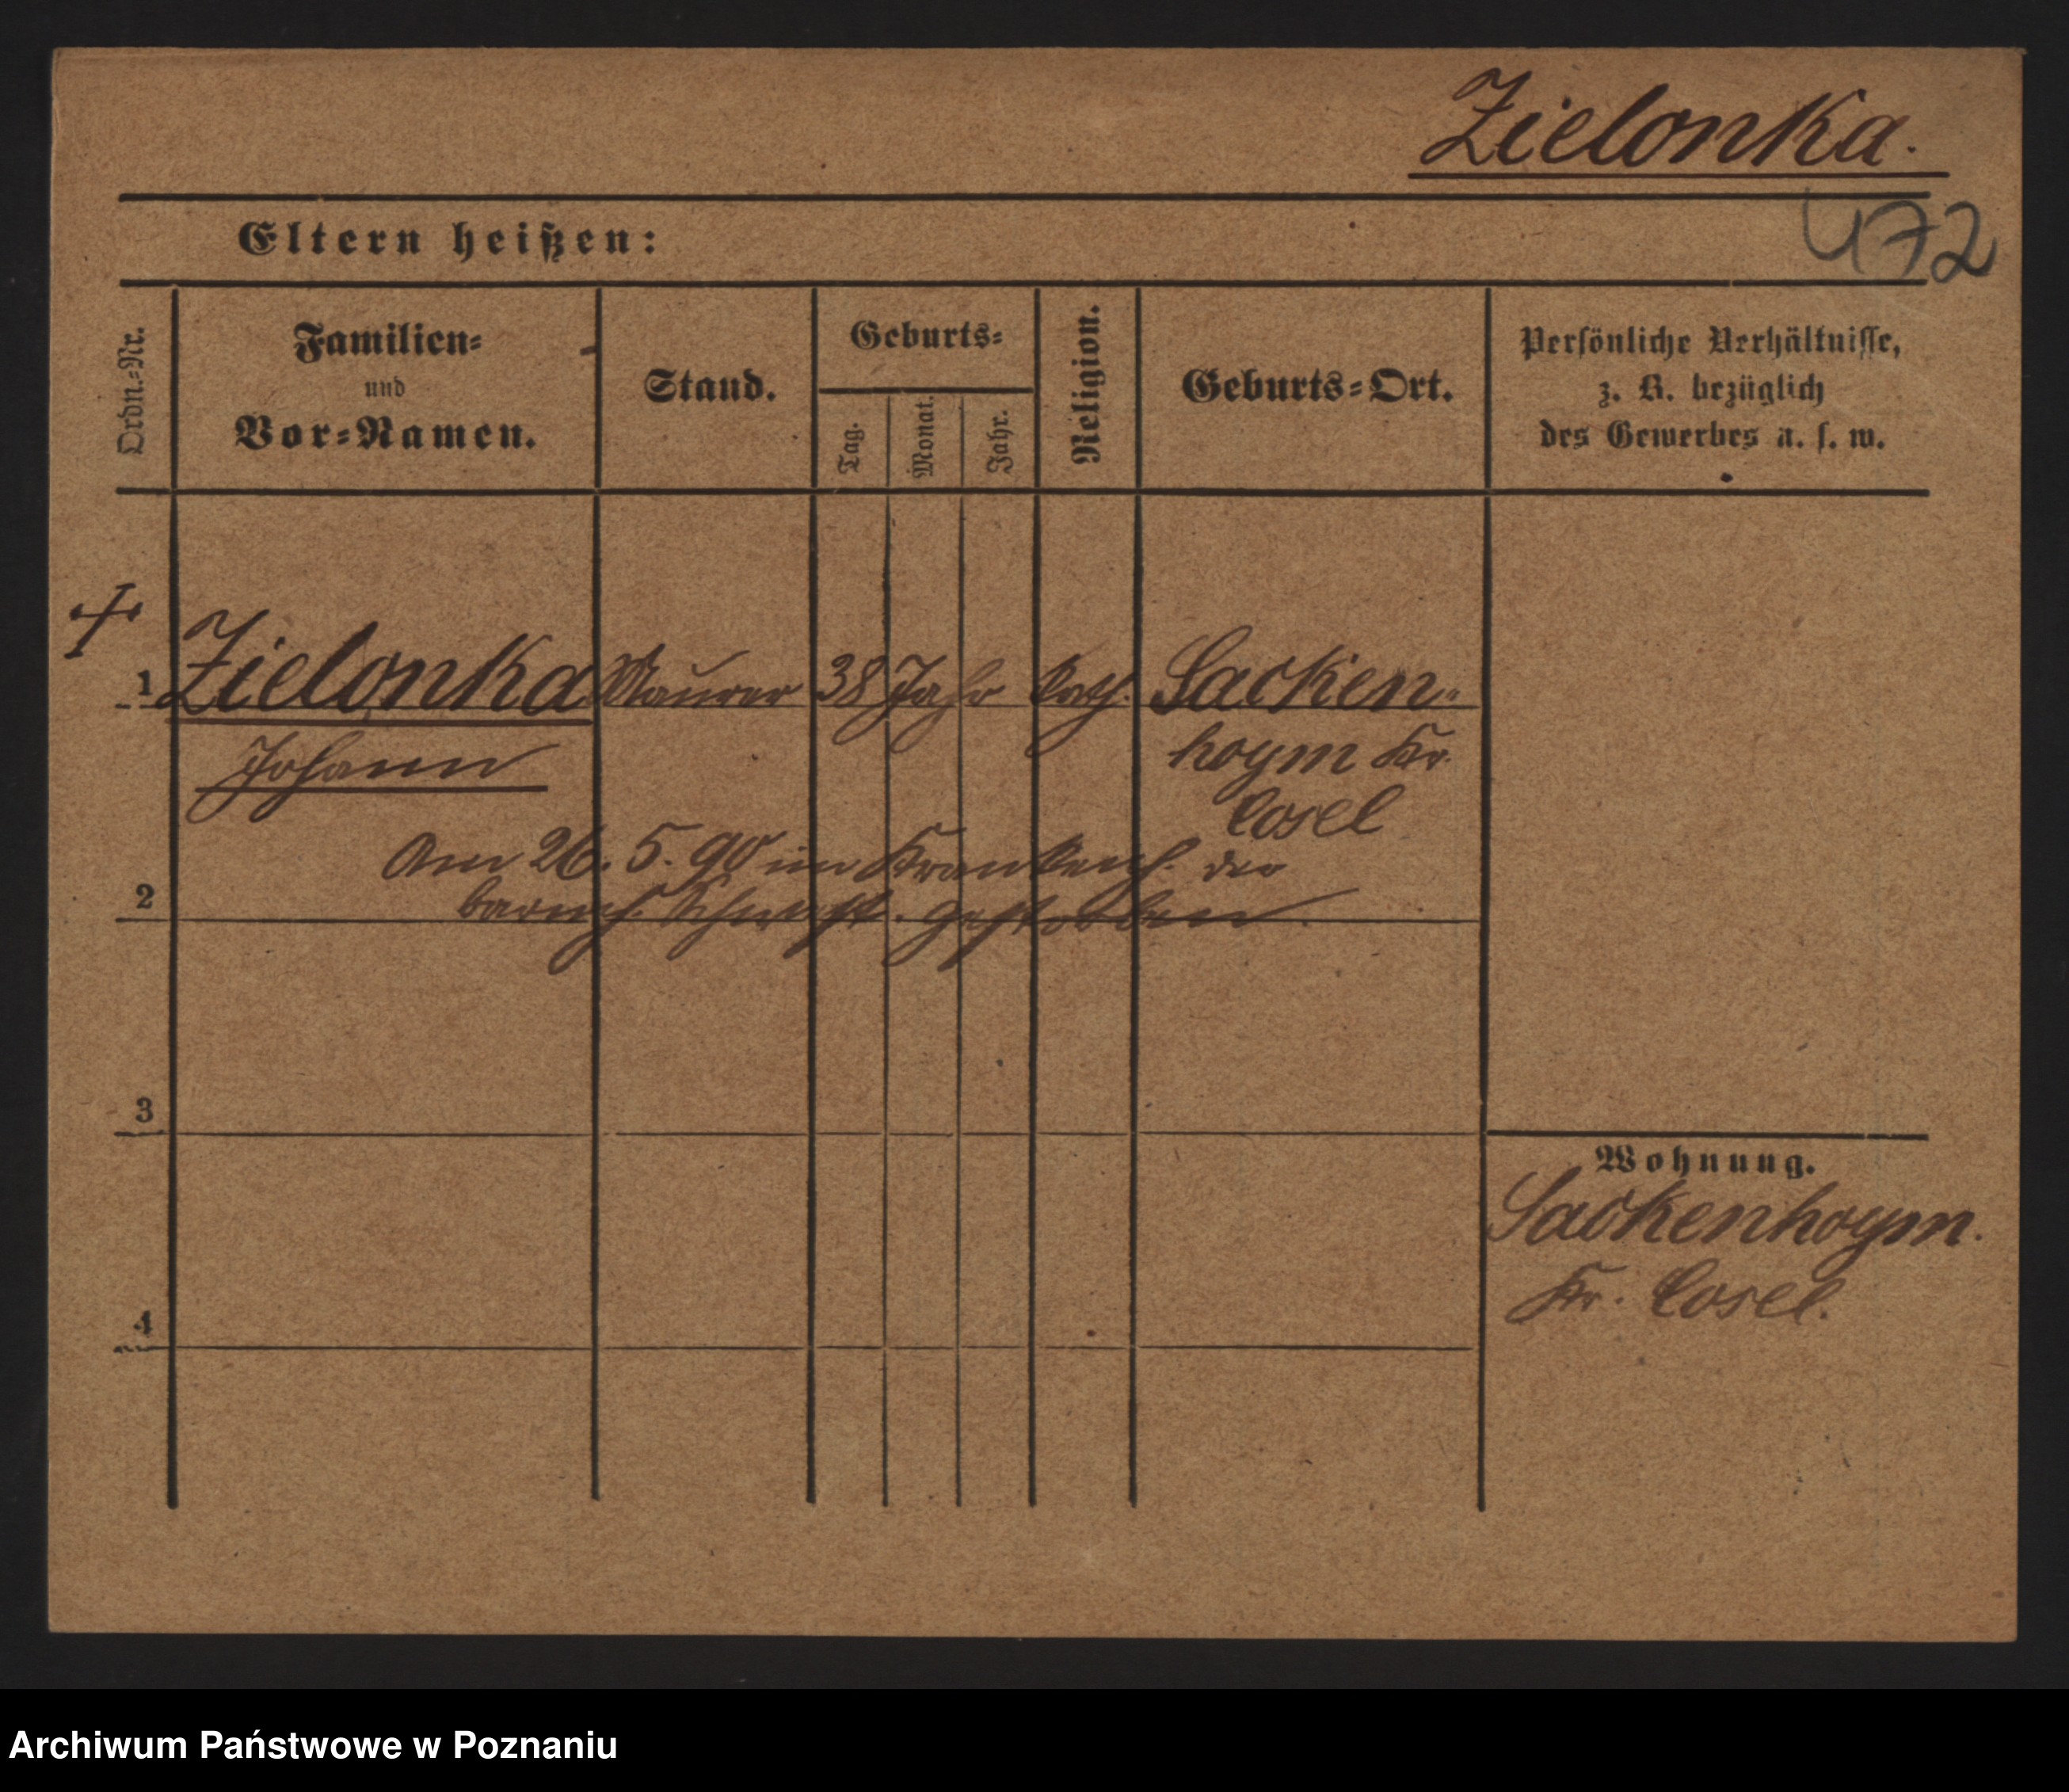 Zielonka.
472
Eltern heißen:
Ordn.=Nr.
Familien=
und
Vor=Namen.
Stand.
Geburts=
Tag.
Monat.
Jahr.
Religion.
Geburts=Ort.
Persönliche Verhältnisse,
z. B. bezüglich
des Gewerbes u. s. w.
†
1 Zielonka Maurer 38 Jahr kath. Sacken=
Johann
hoym Kr.
Cosel
Am 26. 5. 90 im Krankenh. der
2 barmh. Schwest. gestorben.
3
Wohnung.
Sackenhoym.
Kr. Cosel.
4
Archiwum Państwowe w Poznaniu